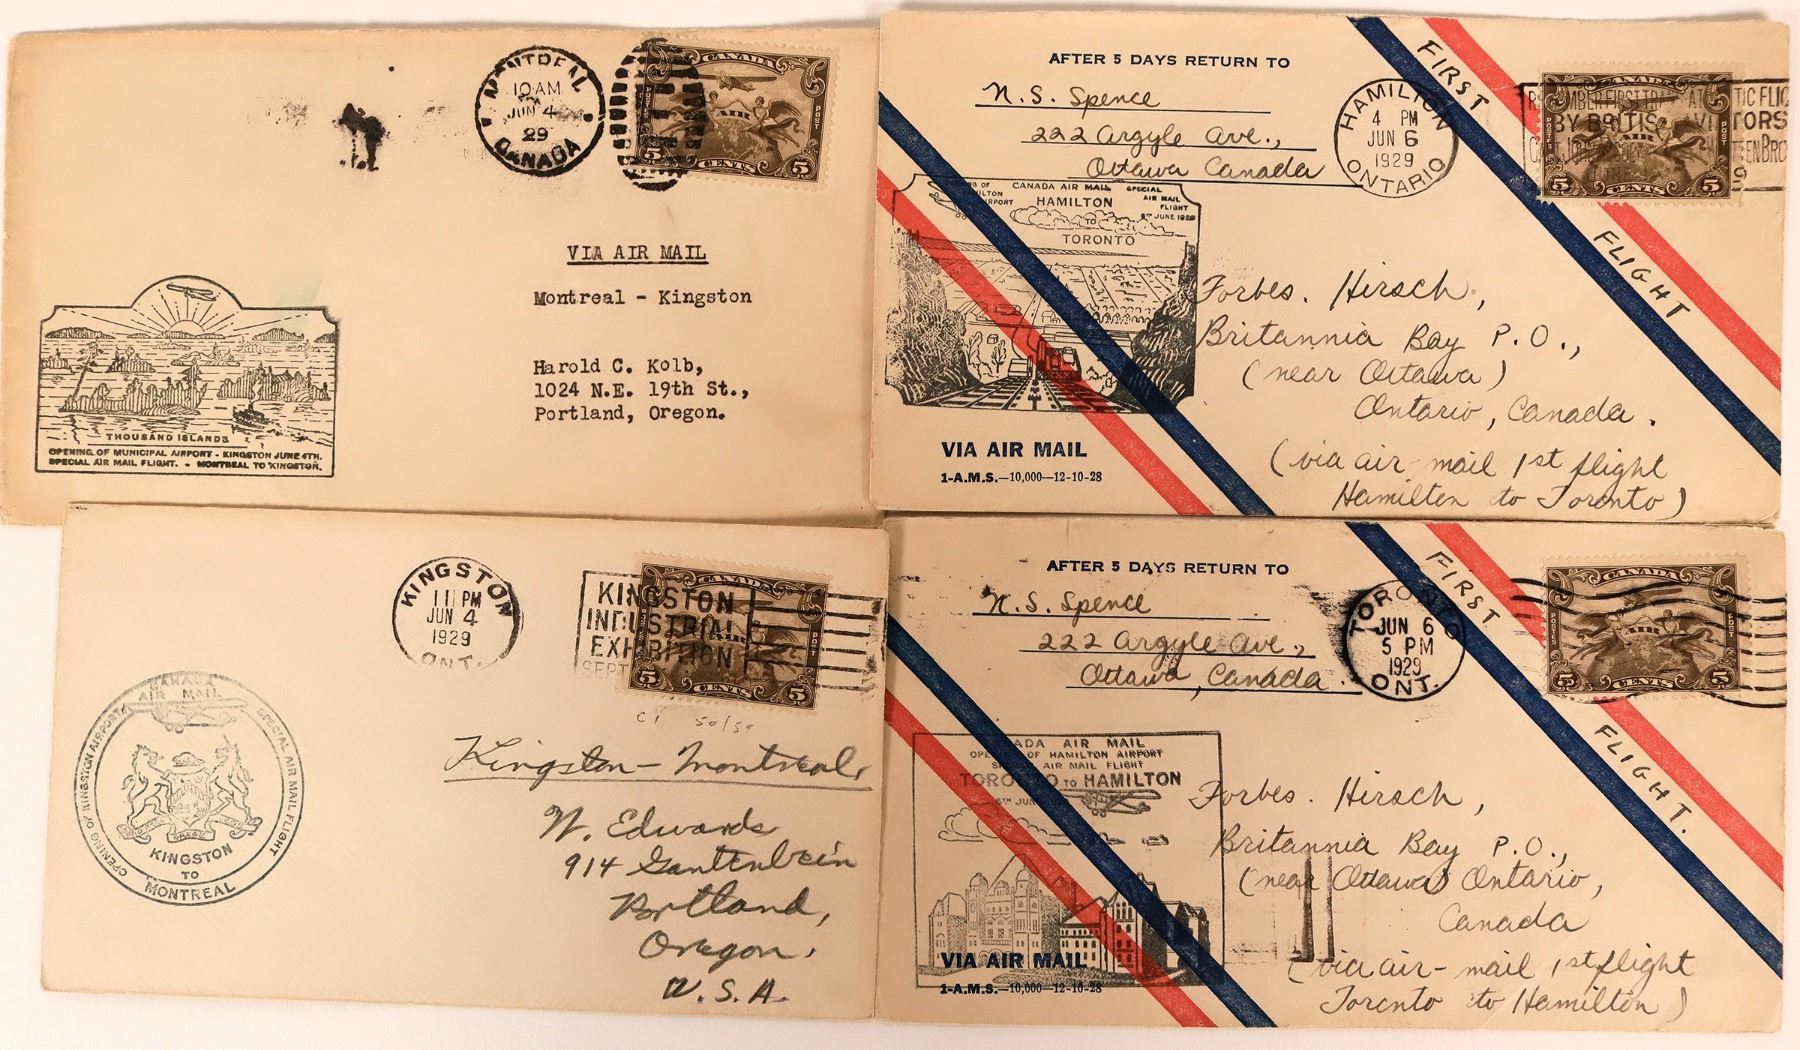 MONTREAL
10 AM
JUN 4
29
CANADA
CANADA
POSTES
POST
AIR
5 CENTS 5
VIA AIR MAIL
Montreal - Kingston
Harold C. Kolb,
1024 N.E. 19th St.,
Portland, Oregon.
THOUSAND ISLANDS
OPENING OF MUNICIPAL AIRPORT - KINGSTON JUNE 4TH.
SPECIAL AIR MAIL FLIGHT. - MONTREAL TO KINGSTON.
AFTER 5 DAYS RETURN TO
N. S. Spence
222 Argyle Ave.,
Ottawa Canada
FIRST
FLIGHT
HAMILTON
4 PM
JUN 6
1929
ONTARIO
BY BRITIS
CANADA
POSTES
POST
AIR
5 CENTS 5
CANADA AIR MAIL
SPECIAL
AIR MAIL
FLIGHT
6TH JUNE 1929
HAMILTON
TO
TORONTO
Forbes. Hirsch,
Britannia Bay P.O.,
(near Ottawa)
Ontario, Canada.
(via air-mail 1st flight
Hamilton to Toronto)
VIA AIR MAIL
1-A.M.S.—10,000—12-10-28
KINGSTON
11 PM
JUN 4
1929
ONT.
KINGSTON
INDUSTRIAL
EXHIBITION
SEPT
CANADA
POST
AIR
5 CENTS 5
C1 50/59
Kingston - Montreal.
W. Edwards
914 Gantenbein
Portland,
Oregon.
U.S.A.
CANADA
AIR MAIL
OPENING OF KINGSTON AIRPORT
SPECIAL AIR MAIL FLIGHT
KINGSTON
TO
MONTREAL
AFTER 5 DAYS RETURN TO
N. S. Spence
222 Argyle Ave.,
Ottawa, Canada.
FIRST
FLIGHT.
TORONTO
JUN 6
5 PM
1929
ONT.
CANADA
POSTES
POST
AIR
5 CENTS 5
ADA AIR MAIL
OF HAMILTON AIRPORT
AIR MAIL FLIGHT
TORONTO TO HAMILTON
6TH JUN
Forbes. Hirsch,
Britannia Bay P.O.,
(near Ottawa) Ontario,
Canada
(via air-mail 1st flight
Toronto to Hamilton)
VIA AIR MAIL
1-A.M.S.—10,000—12-10-28